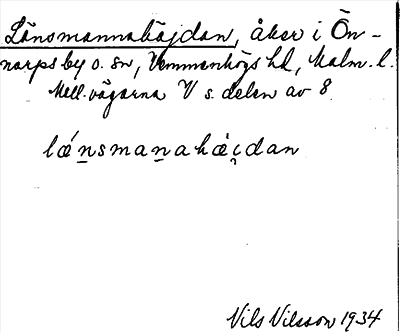 Länsmannahäjdan, åker i Ön-
narps by o. sn, Vemmenhögs hd, Malm. l.
Mell. vägarna V s. delen av 8
lǽn̲sman̲ahæ̀i̯dan
Nils Nilsson 1934